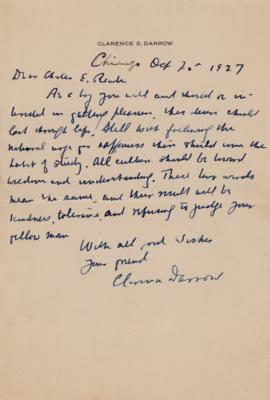 CLARENCE S. DARROW
Chicago Oct 25 1927
Dear Charles E.
As a boy you will and should or in-
terested in getting pleasure, this desire should
last through life. Still with following the
natural urge for happiness there should come the
habit of study. All culture should be toward
wisdom and understanding. These two words
mean the same, and their result will be
kindness, tolerance, and refusing to judge your
fellow man
With all good wishes
Your friend
Clarence Darrow